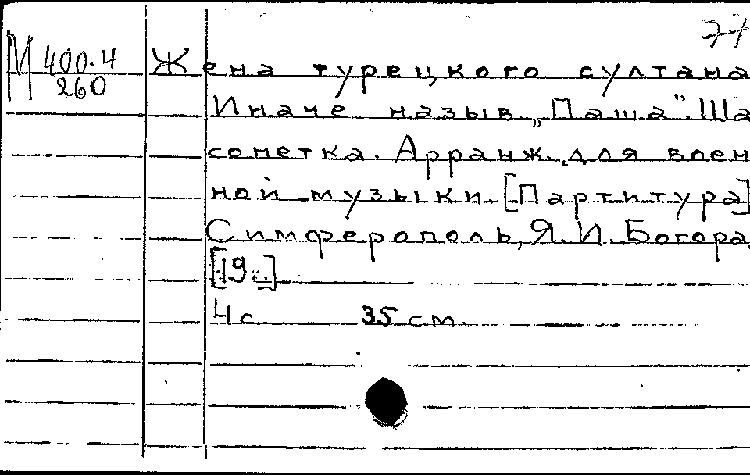 77
М 400.4
260
Жена турецкого султана
Иначе назыв. „Паша". Ша
сонетка. Арранж. для воен
ной музыки. [Партитура]
Симферополь, Я. И. Богора
[19..]
4 с 35 см